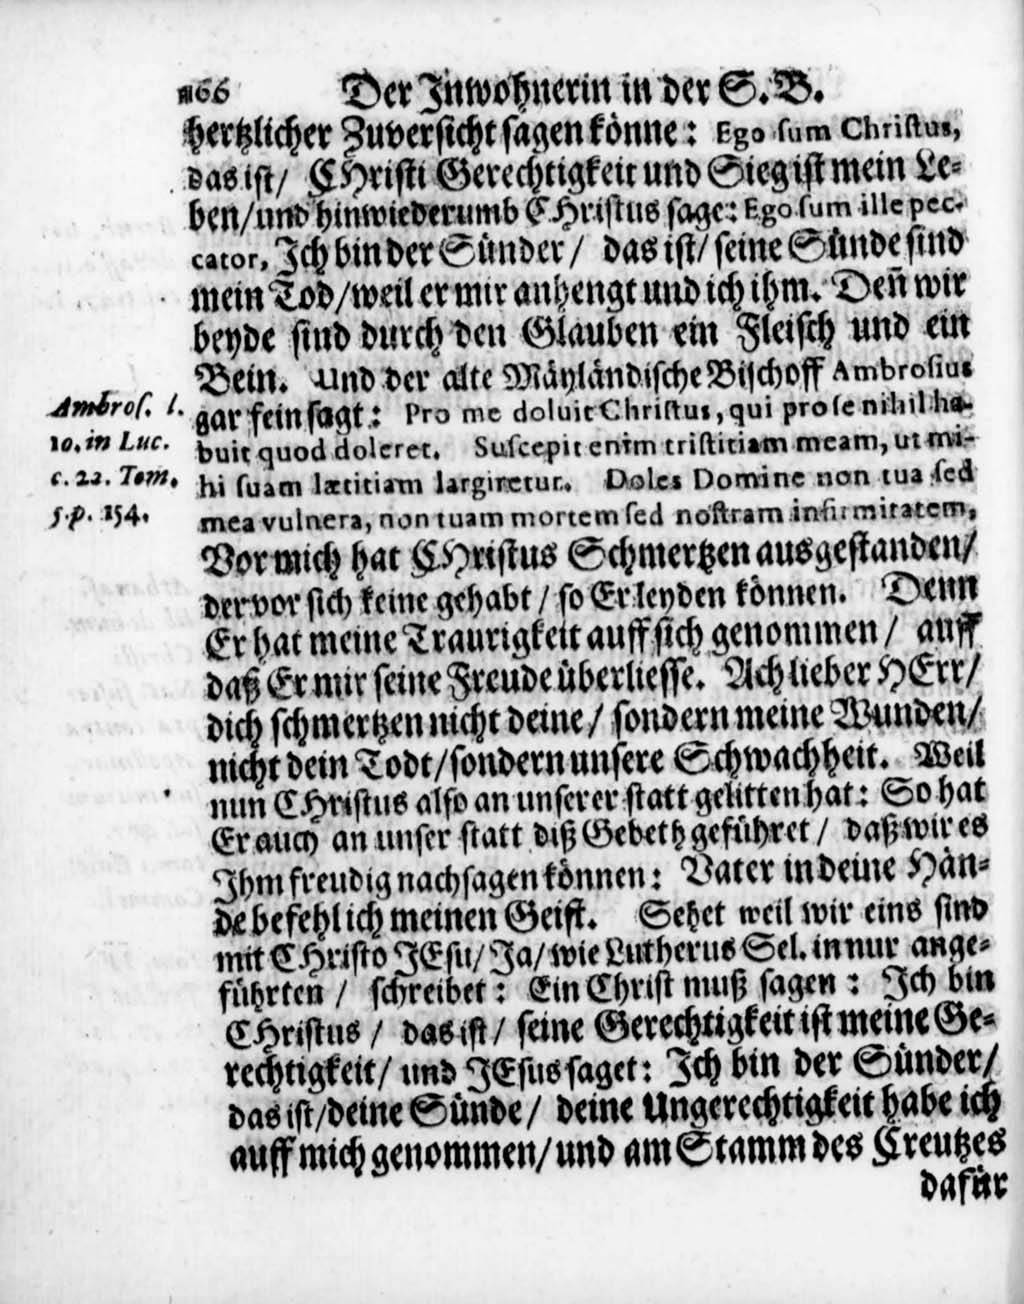 166 Der Inwohnerin in der S. B.
hertzlicher Zuversicht sagen könne: Ego sum Christus,
das ist/ CHristi Gerechtigkeit und Sieg ist mein Le-
ben/und hinwiederumb CHristus sage: Ego sum ille pec-
cator, Ich bin der Sünder/ das ist/ seine Sünde sind
mein Tod/weil er mir anhengt und ich ihm. Deñ wir
beyde sind durch den Glauben ein Fleisch und ein
Bein. Und der alte Mäyländische Bischoff Ambrosius
gar fein sagt: Pro me doluit Christus, qui pro se nihil ha-
buit quod doleret. Suscepit enim tristitiam meam, ut mi-
hi suam lætitiam largiretur. Doles Domine non tua sed
mea vulnera, non tuam mortem sed nostram infirmitatem,
Vor mich hat CHristus Schmertzen ausgestanden/
der vor sich keine gehabt/ so Er leyden können. Denn
Er hat meine Traurigkeit auff sich genommen/ auff
daß Er mir seine Freude überliesse. Ach lieber HErr/
dich schmertzen nicht deine/ sondern meine Wunden/
nicht dein Todt/sondern unsere Schwachheit. Weil
nun CHristus also an unserer statt gelitten hat: So hat
Er auch an unser statt diß Gebeth geführet/ daß wir es
Ihm freudig nachsagen können: Vater in deine Hän-
de befehl ich meinen Geist. Sehet weil wir eins sind
mit CHristo JEsu/ Ja/ wie Lutherus Sel. in nur ange-
führten/ schreibet: Ein Christ muß sagen: Ich bin
CHristus/ das ist/ seine Gerechtigkeit ist meine Ge-
rechtigkeit/ und JEsus saget: Ich bin der Sünder/
das ist/deine Sünde/ deine Ungerechtigkeit habe ich
auff mich genommen/und am Stamm des Creutzes
dafür
Ambros. l.
10. in Luc.
c. 22. Tom.
5. p. 154.